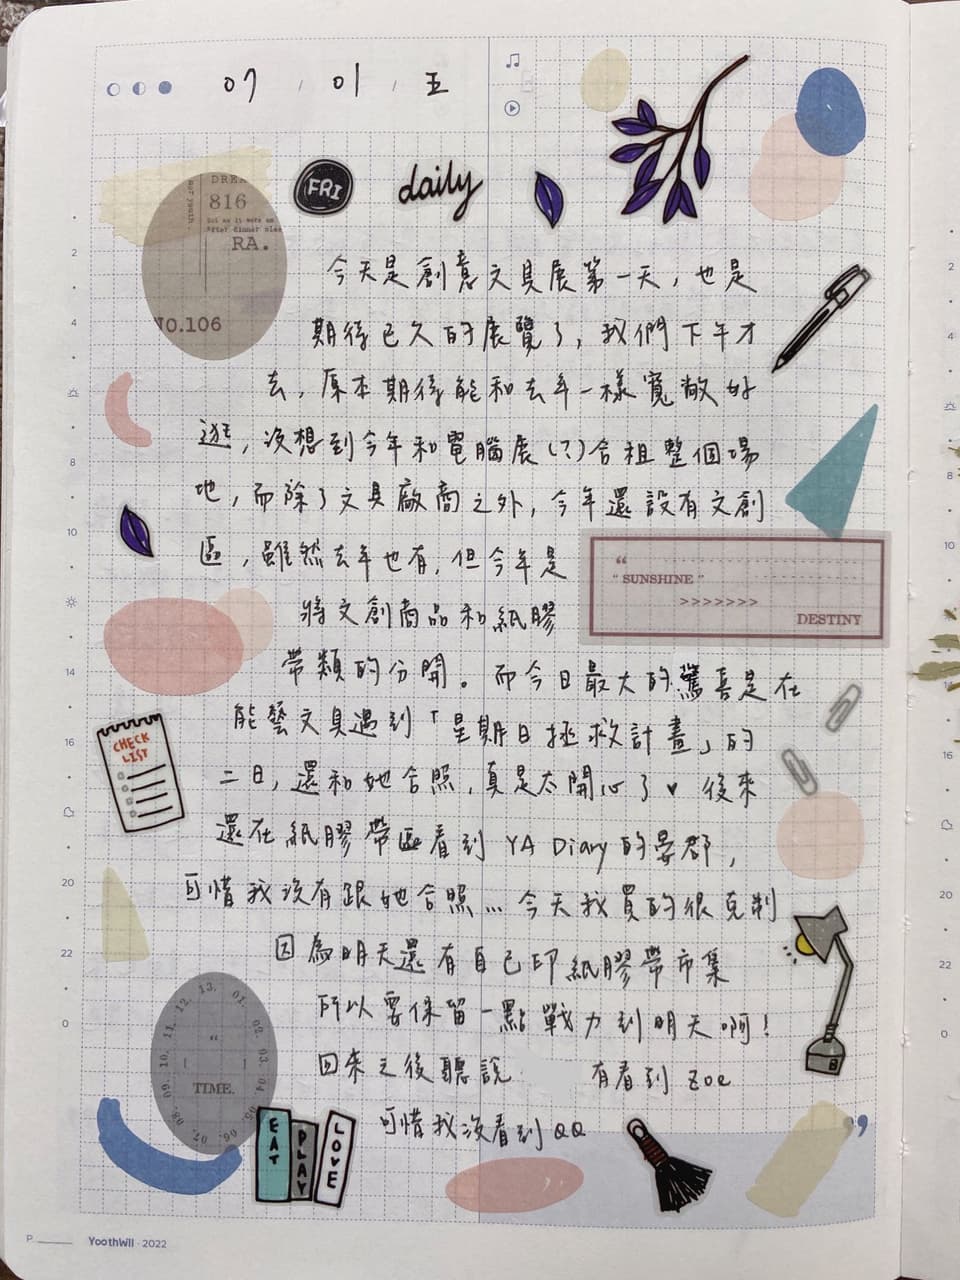 07 , 01 , 五
DREA
our youth.
816
But as it were an
After dinner slee
RA.
NO.106
FRI
daily
今天是創意文具展第一天,也是
期待已久的展覽了,我們下午才
去,原本期待能和去年一樣寬敞好
逛,沒想到今年和電腦展(?)合租整個場
地,而除了文具廠商之外,今年還設有文創
區,雖然去年也有,但今年是
將文創商品和紙膠
帶類的分開。而今日最大的驚喜是在
能藝文具遇到「星期日拯救計畫」的
二日,還和她合照,真是太開心了♥後來
還在紙膠帶區看到 YA Diary的晏郡,
可惜我沒有跟她合照...今天我買的很克制
因為明天還有自己印紙膠帶市集
所以要保留一點戰力到明天啊!
回來之後聽說 有看到 Zoe
可惜我沒看到QQ
“
" SUNSHINE "
>>>>>>>
DESTINY
CHECK
LIST
01. 02. 03. 04. 05. 06. 07. 08. 09. 10. 11. 12. 13.
“
TIME.
EAT
PLAY
LOVE
”
2
4
8
10
14
16
20
22
0
P
YoothWill · 2022
2
4
8
10
14
16
20
22
0